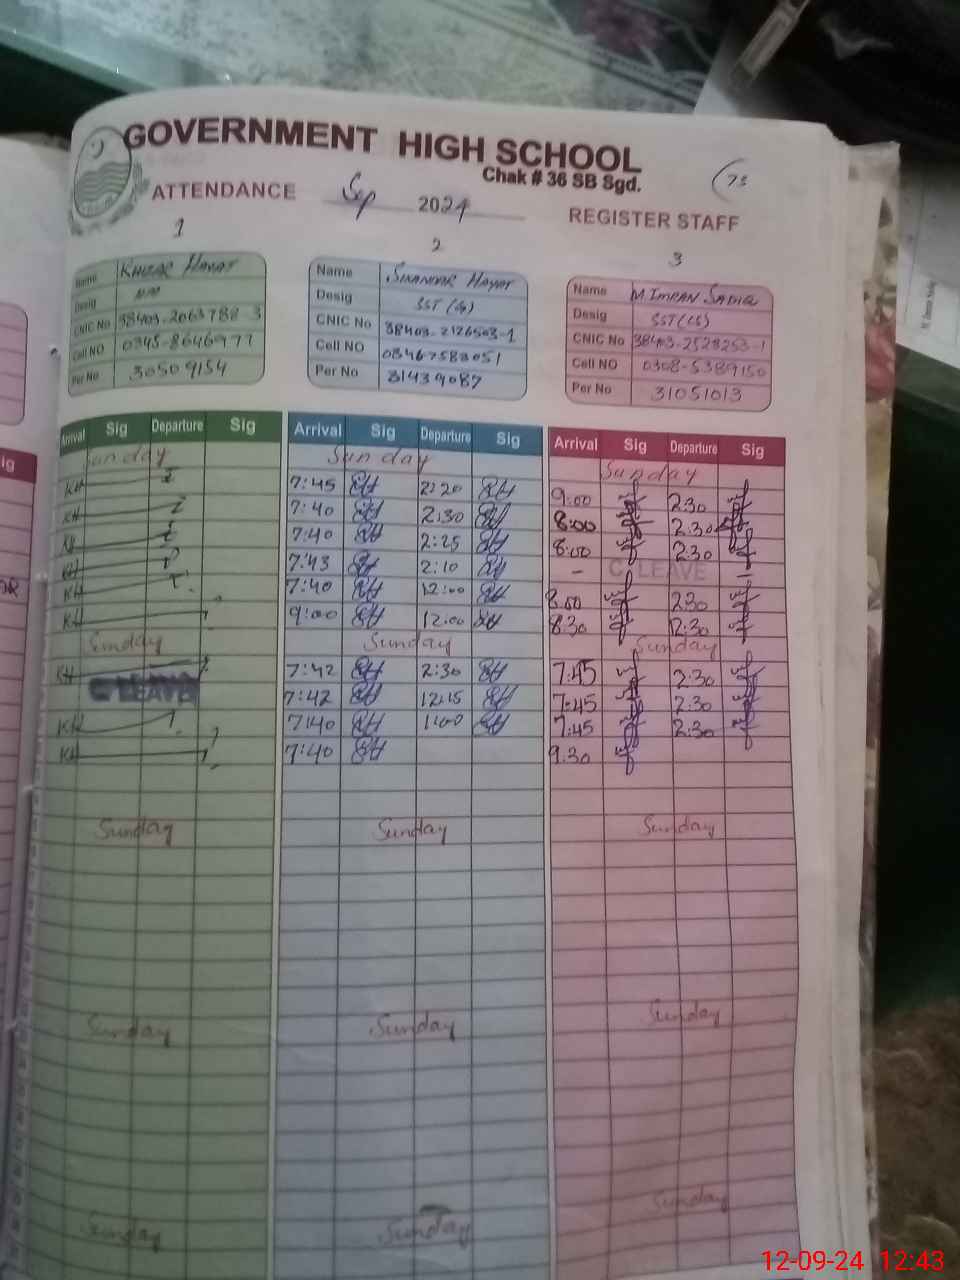 GOVERNMENT HIGH SCHOOL
Chak # 36 SB Sgd.
ATTENDANCE Sep 2024 REGISTER STAFF
1 2 3
Name KHIZAR HAYAT
Desig
CNIC No 38403-2063788-3
Cell NO 0345-8646977
Per No 30509154
Name SIKANDAR HAYAT
Desig SST
CNIC No 38403-2126503-1
Cell NO 03467583051
Per No 31439087
Name M. IMRAN SADIQ
Desig SST(CS)
CNIC No 38403-2528253-1
Cell NO 0308-5389150
Per No 31051013
Arrival Sig Departure Sig Arrival Sig Departure Sig Arrival Sig Departure Sig
Sunday Sunday Sunday
KH 7:45 2:20 9:00 2:30
KH 7:40 2:30 8:00 2:30
KH 7:40 2:25 8:00 2:30
KH 7:43 2:10 - C LEAVE
KH 7:40 12:00 8:00 2:30
KH 9:00 12:00 8:30 12:30
Sunday Sunday Sunday
KH 7:42 2:30 7:45 2:30
C LEAVE 7:42 12:15 7:45 2:30
KH 7:40 1:00 7:45 2:30
KH 7:40 9:30
Sunday Sunday Sunday
Sunday Sunday Sunday
Sunday Sunday Sunday
12-09-24 12:43